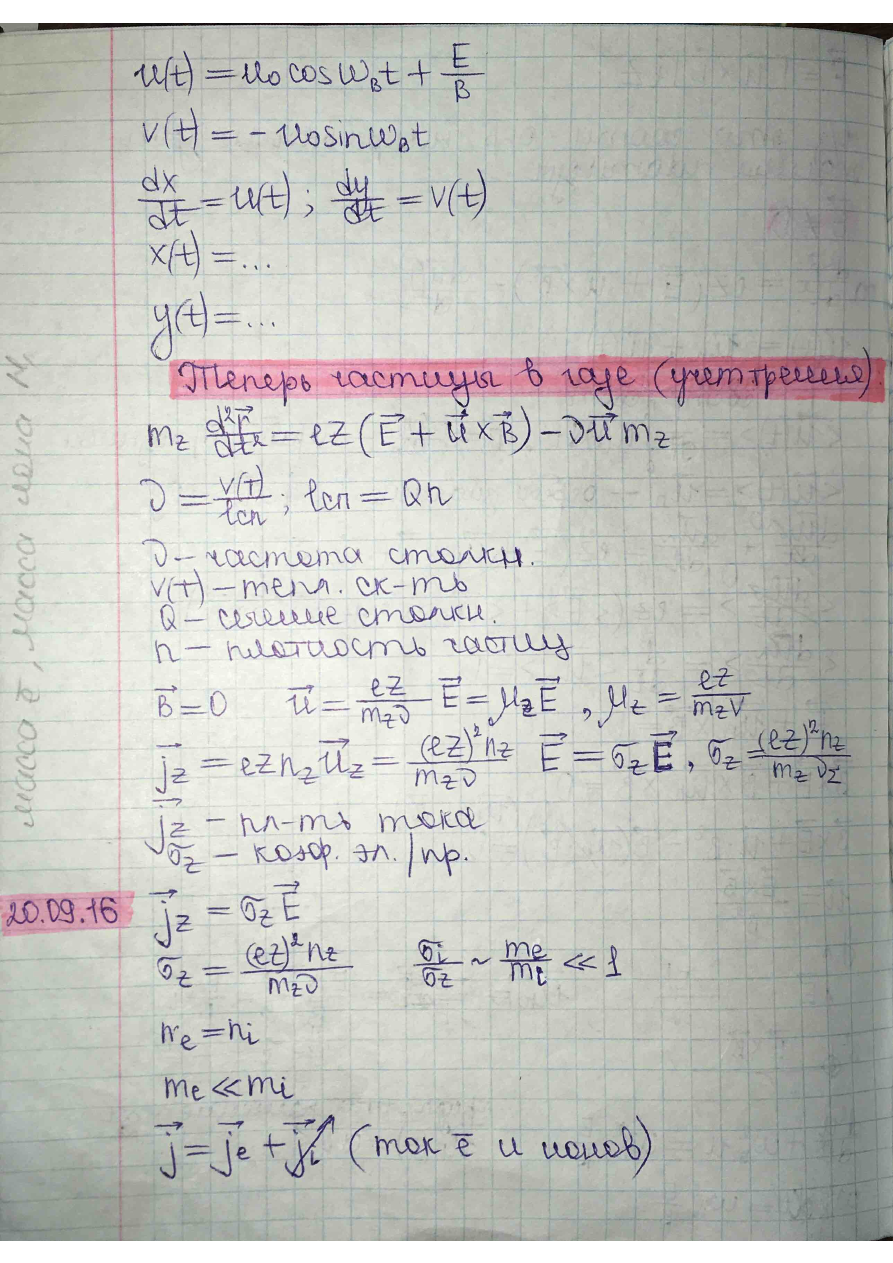 u(t) = u₀ cos ω_B t + E/B
v(t) = − u₀ sin ω_B t
dx/dt = u(t) ; dy/dt = v(t)
x(t) = ...
y(t) = ...
Теперь частицы в газе (учет трения)
m_z d²r⃗/dt² = ez (E⃗ + u⃗ × B⃗) − ν u⃗ m_z
ν = v(т)/lсп ; lсп = Qn
ν – частота столкн.
v(т) – тепл. ск-ть
Q – сечение столкн.
n – плотность частиц
B⃗ = 0 u⃗ = ez/(m_z ν) E⃗ = μ_z E⃗ , μ_z = ez/(m_z ν)
j⃗_z = ez n_z u⃗_z = (ez)² n_z/(m_z ν) E⃗ = σ_z E⃗ , σ_z = (ez)² n_z/(m_z ν_Σ)
j⃗_z – пл-ть тока
σ_z – коэф. эл. | пр.
20.09.16 j⃗_z = σ_z E⃗
σ_z = (ez)² n_z/(m_z ν) σ_i/σ_z ~ m_e/m_i ≪ 1
n_e = n_i
m_e ≪ m_i
j⃗ = j⃗_e + j⃗_i (ток e̅ и ионов)
масса e̅, масса иона